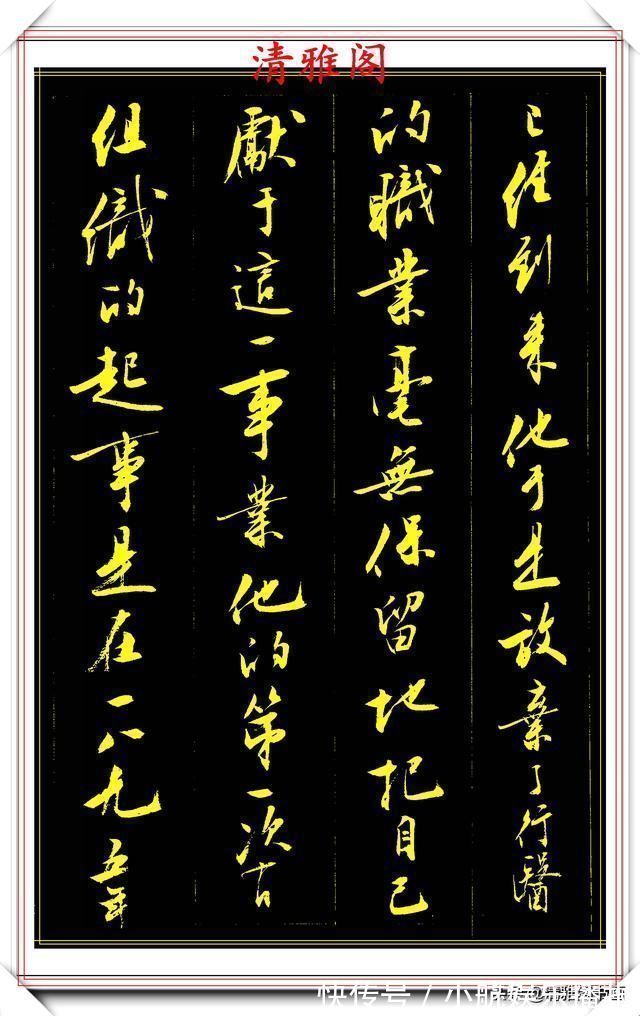 清雅阁
已經到來他于是放棄了行醫
的職業毫無保留地把自己
獻于這一事業他的第一次有
组織的起事是在一八九五年
快传号 /